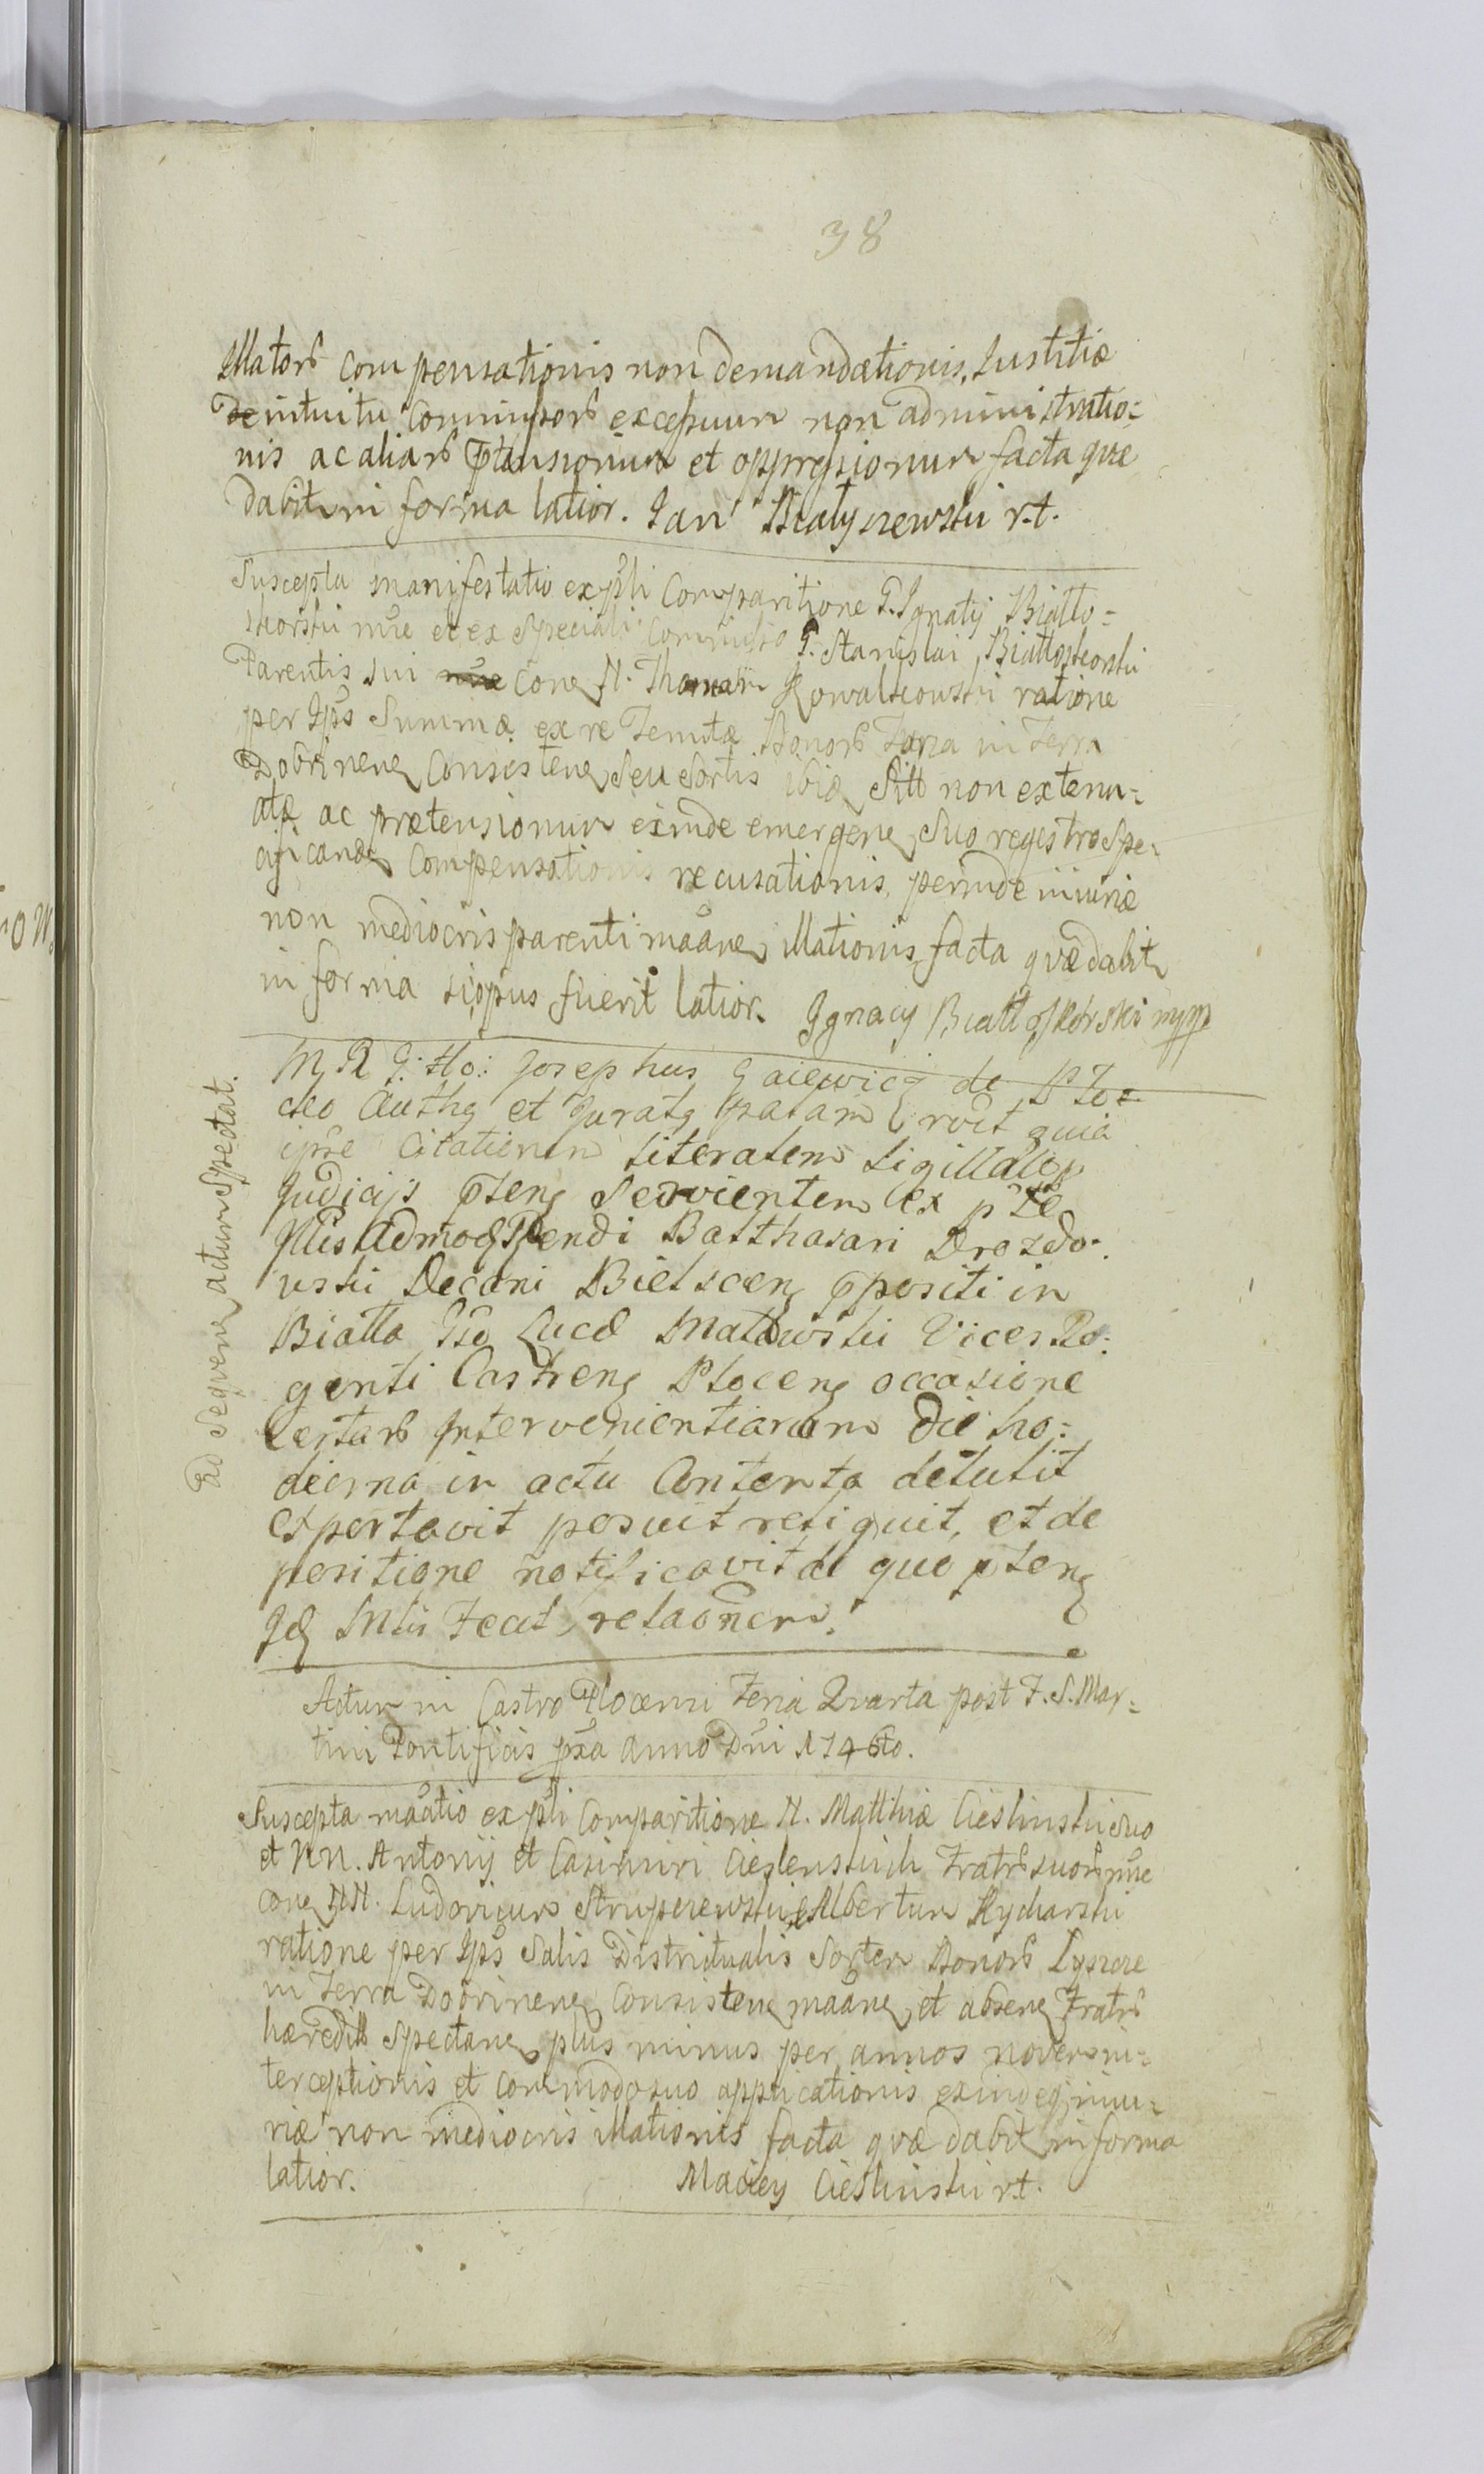 38
illator compensationis non demandationis, Iustitiæ
intuitu commissor excessuum non administratio=
nis ac aliar ptensionum et oppressionum facta quæ
dabit in forma latior. Jan Białyszewski r.t.
Suscepta manifestatio ex psli Comparitione G. Ignatij Biało=
skorski nõe et ex Speciali Commisso G. Stanislai Białłoskorski
Parentis sui con N. Thomam Kowalkowski ratione
per Ips Summæ ex re Tenutæ Bonor in Terra
Dobrinen Consisten seu Sortis ibid non extenu=
atæ ac prætensionum exinde emergen suo regestro Spe=
cificand Compensationis recusationis, perinde iniuriæ
non mediocris parenti maãn illationis facta quæ dabit
in forma si opus fuerit latior. Ignacy Białłoskórski mpp
M R G. Ho: Josephus Gaiewicz de Płoc
cko Auth et Jurat palam
ipse Citationem literalem sigillatem
Judicijs pten Servientem ex pte
Illis Admod Rendi Balthasari Drozdo=
wski Decani Bielscen ppositi in
Biała Gso Lucæ Vices Re=
genti Castren Plocen occasione
Certar Intervenientiarum die ho=
dierna in actu Contenta detulit
et portavit posuit reliquit, et de
positione notificavit de quo pten
Id Mlis Fecit relaõnem.
Ad Sequen actum Spectat.
Actum in Castro Plocensi Feria Quarta post F. S. Mar=
tini Pontificis pxã anno Dni 1746to.
Suscepta maãtio ex psli Comparitione N. Matthiæ Cieslinski suo
et NN. Antonij et Casimiri Cieslenskich Fratr suor nõe
con NN. Ludovicum Strupczewski et Albertum Rycharski
ratione per Ips Salis Districtualis Sortem Bonor
in Terra Dobrinen Consisten maãn et absen Fratr
hæredit Spectan plus minus per annos novem in=
terceptionis et commodo suo applicationis exindeq iniu=
riæ non mediocris illationis facta quæ dabit in forma
latior. Maciey Cieslinski r.t.